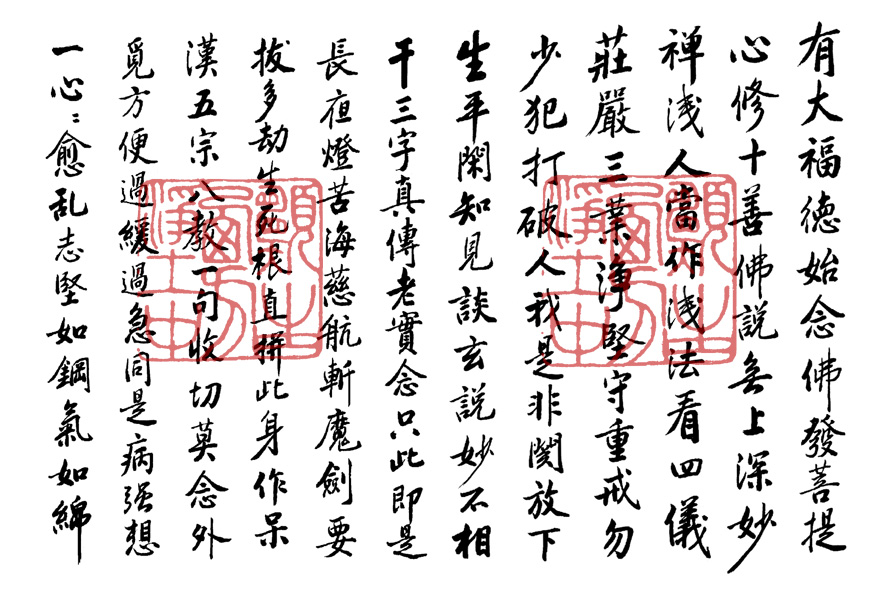 有大福德始念佛發菩提
心修十善佛說無上深妙
禅淺人當作淺法看四儀
莊嚴三業淨堅守重戒勿
少犯打破人我是非関放下
生平閑知見談玄說妙不相
干三字真傳老實念只此即是
長夜燈苦海慈航斬魔劍要
拔多劫生死根直拼此身作呆
漢五宗八教一句收切莫念外
覓方便過緩過急同是病强想
一心〻愈乱志堅如鋼氣如綿
願生西方淨土中
願生西方淨土中